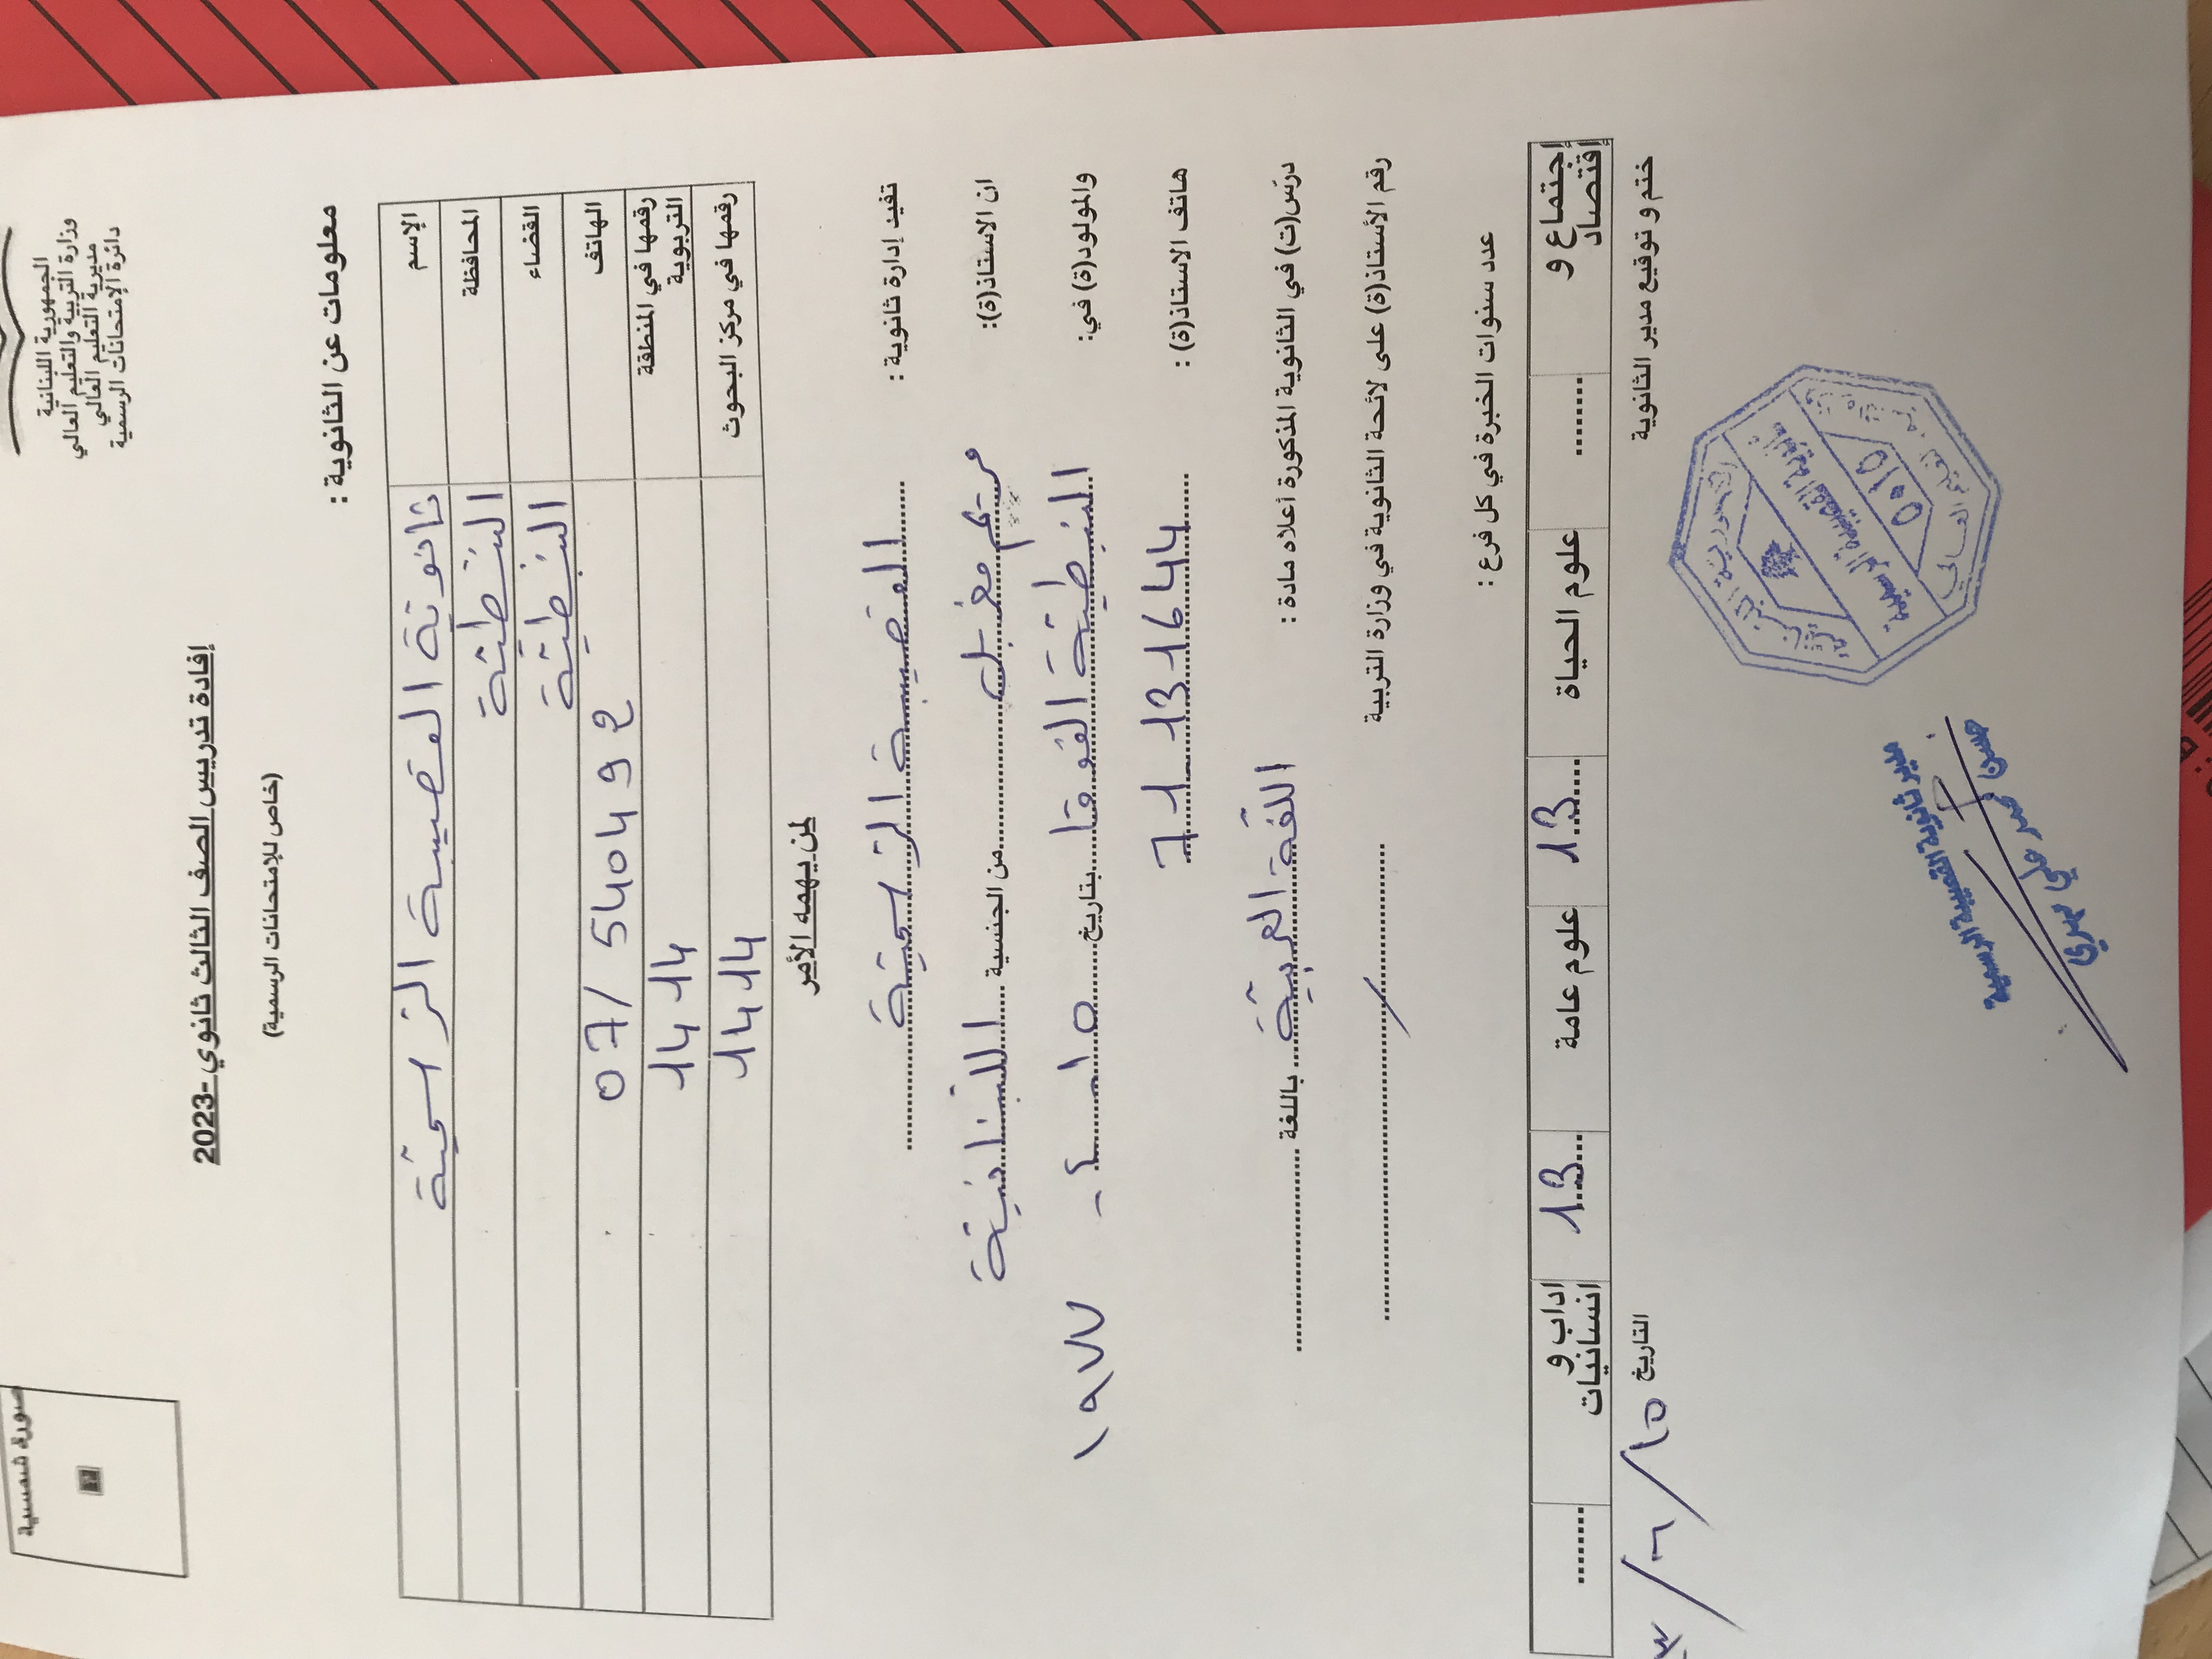 الجمهورية اللبنانية
وزارة التربية والتعليم العالي
مديرية التعليم العالي
دائرة الإمتحانات الرسمية
صورة شمسية
إفادة تدريس الصف الثالث ثانوي -2023
(خاص للإمتحانات الرسمية)
معلومات عن الثانوية :
الإسم ثانوية القصيبة الرسمية
المحافظة النبطية
القضاء النبطية
الهاتف 07/540492
رقمها في المنطقة التربوية 1414
رقمها في مركز البحوث 1414
لمن يهمه الأمر
تفيد إدارة ثانوية : القصيبة الرسمية
ان الاستاذ(ة): مريم مغربل من الجنسية اللبنانية
والمولود(ة) في: النبطية الفوقا بتاريخ ١٥ - ٤ - ١٩٧٧
هاتف الاستاذ(ة) : 71 131644
درّس(ت) في الثانوية المذكورة أعلاه مادة : اللغة العربية باللغة
رقم الأستاذ(ة) على لائحة الثانوية في وزارة التربية /
عدد سنوات الخبرة في كل فرع :
إجتماع و إقتصاد ........ علوم الحياة 13 علوم عامة 13 اداب و انسانيات ........
ختم و توقيع مدير الثانوية التاريخ ١٥/٦/
ثانوية القصيبة الرسمية
مدير ثانوية القصيبة الرسمية